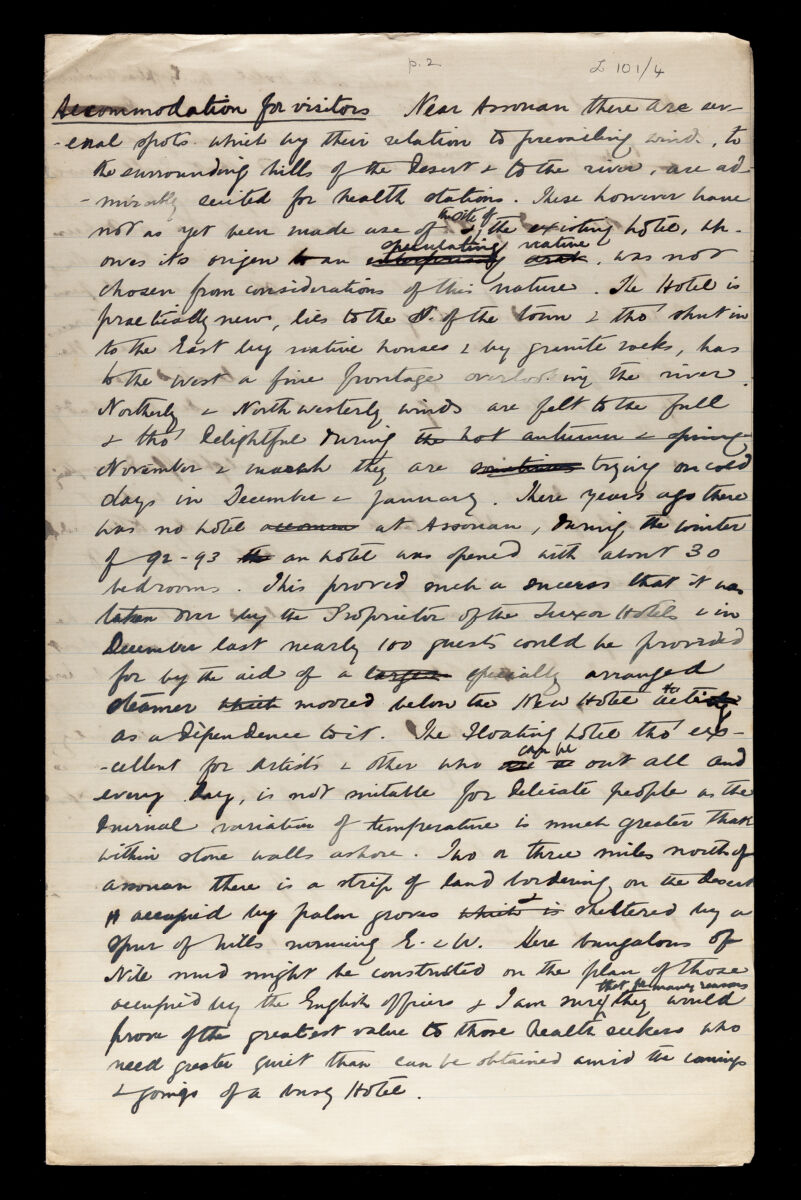 p. 2
L 101/4
Accommodation for visitors Near Assouan there are sev-
-eral spots which by their relation to prevailing wind, to
the surrounding hills of the desert & to the river, are ad-
-mirably suited for health stations. These however have
the site of
not as yet been made use of &, the existing hotel, wh.
speculating native
owes its origen to an enterprising arab, was not
chosen from considerations of this nature. The Hotel is
practically new, lies to the S. of the town & tho' shut in
to the East by native houses & by granite rocks, has
to the west a fine frontage overlooking the river.
Northerly & North westerly winds are felt to the full
& tho' delightful during the hot autumn & spring
November & march they are sometimes trying on cold
days in December & January. Three years ago there
was no hotel at Assouan, during the winter
of 92-93 the an hotel was opened with about 30
bedrooms. This proved such a success that it was
taken over by the Proprietor of the Luxor Hotels & in
December last nearly 100 guests could be provided
for by the aid of a larger specially arranged
steamer which moored below the New Hotel
as a dependence to it. The Floating hotel tho' ex-
can be
-cellent for artists & other who are out all and
every day, is not suitable for delicate people as the
diurnal variation of temperature is much greater than
within stone walls ashore. Two or three miles north of
assouan there is a strip of land bordering on the desert
occupied by palm groves which is & sheltered by a
spur of hills running E. & W. Here bungalows of
Nile mud might be constructed on the plan of those
that for many reasons
occupied by the English officers & I am sure they would
prove of the greatest value to those health seekers who
need greater quiet than can be obtained amid the comings
& goings of a busy Hotel.